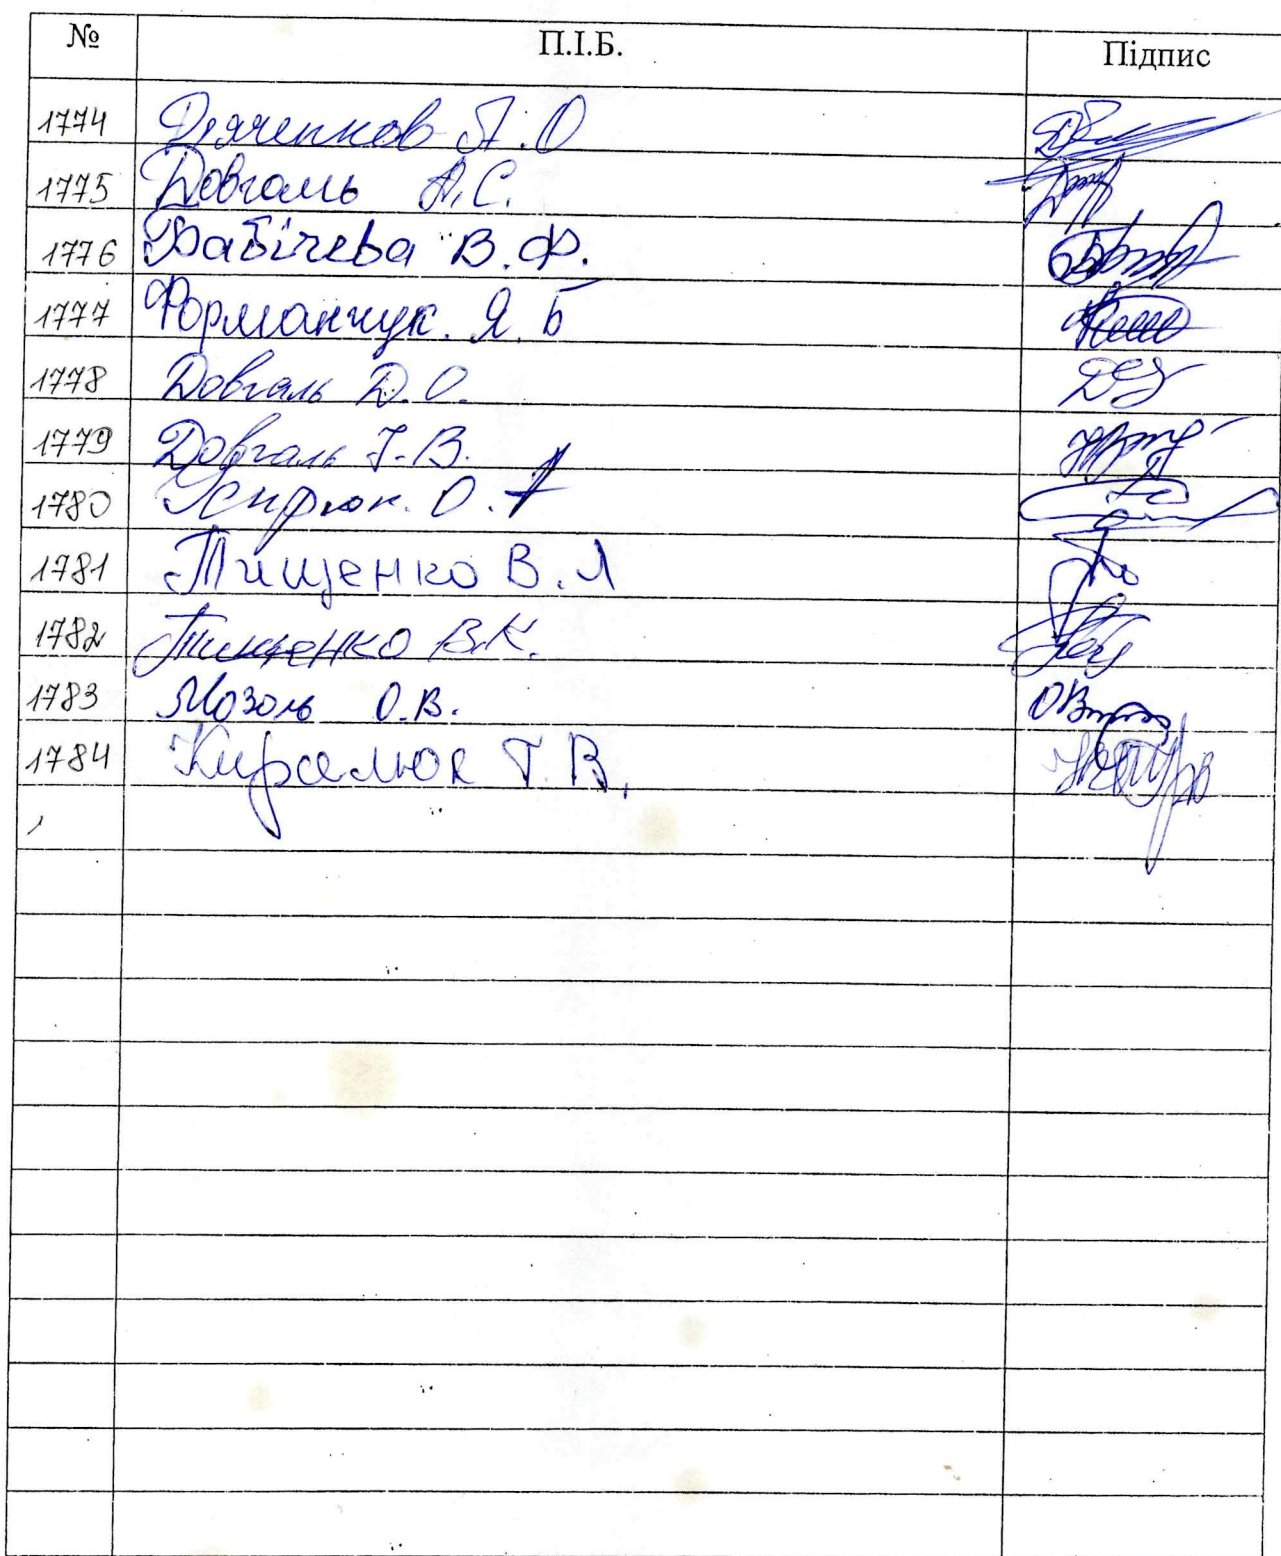 № П.І.Б. Підпис
1774 Дяченков А.О
1775 Довгаль А.С.
1776 Бабічева В.Ф.
1777 Форманчук. Я.Б
1778 Довгаль Д.О.
1779 Довгаль І.В.
1780 О.А
1781 Тищенко В.Л
1782 Тищенко В.К.
1783 Мозоль О.В.
1784 Т.В.